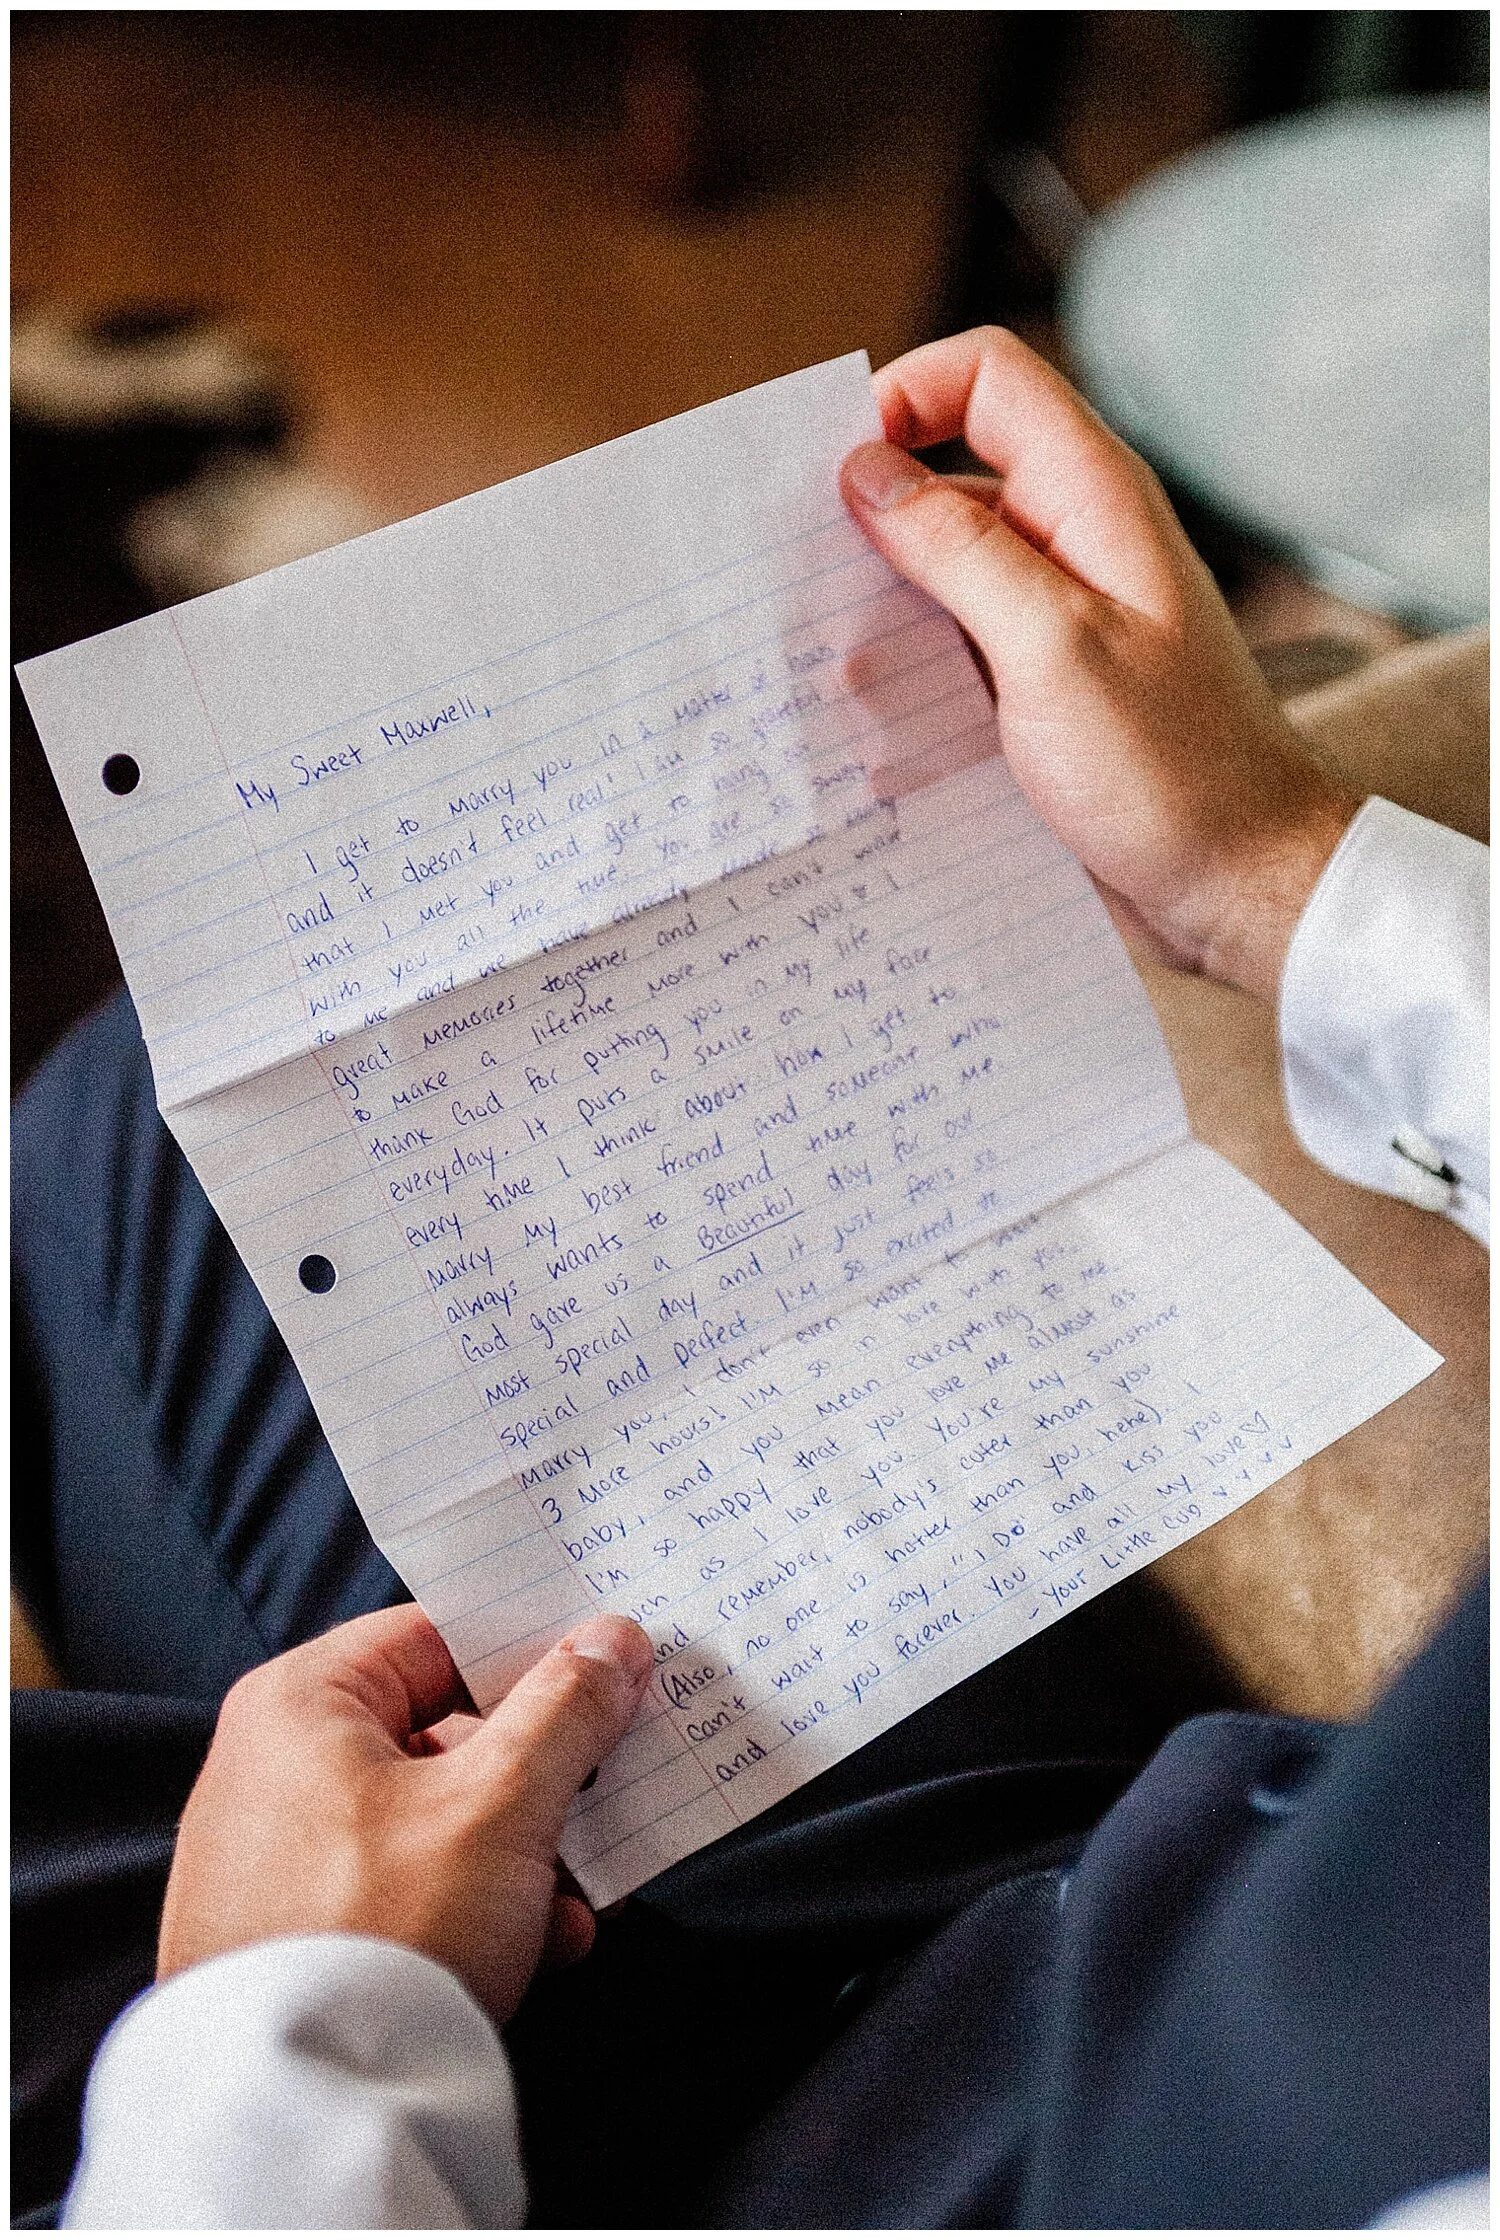 My Sweet Maxwell,
I get to marry you in a matter of hours
and it doesn't feel real! I am so grateful
that I met you and get to hang out
with you all the time. You are so
to me and we have already made so many
great memories together and I can't wait
to make a lifetime more with you. I
thank God for putting you in my life
everyday. It puts a smile on my face
every time I think about how I get to
marry my best friend and someone who
always wants to spend time with me.
God gave us a Beautiful day for our
most special day and it just feels so
special and perfect. I'm so excited to
marry you, I don't even want to wait
3 more hours! I'm so in love with you
baby, and you mean everything to me
I'm so happy that you love me almost as
uch as I love you. You're my sunshine
and remember, nobody's cuter than you
(Also, no one is hotter than you, hehe). I
can't wait to say, "I Do" and kiss you
and love you forever. You have all my love ♡
- Your Little Cub